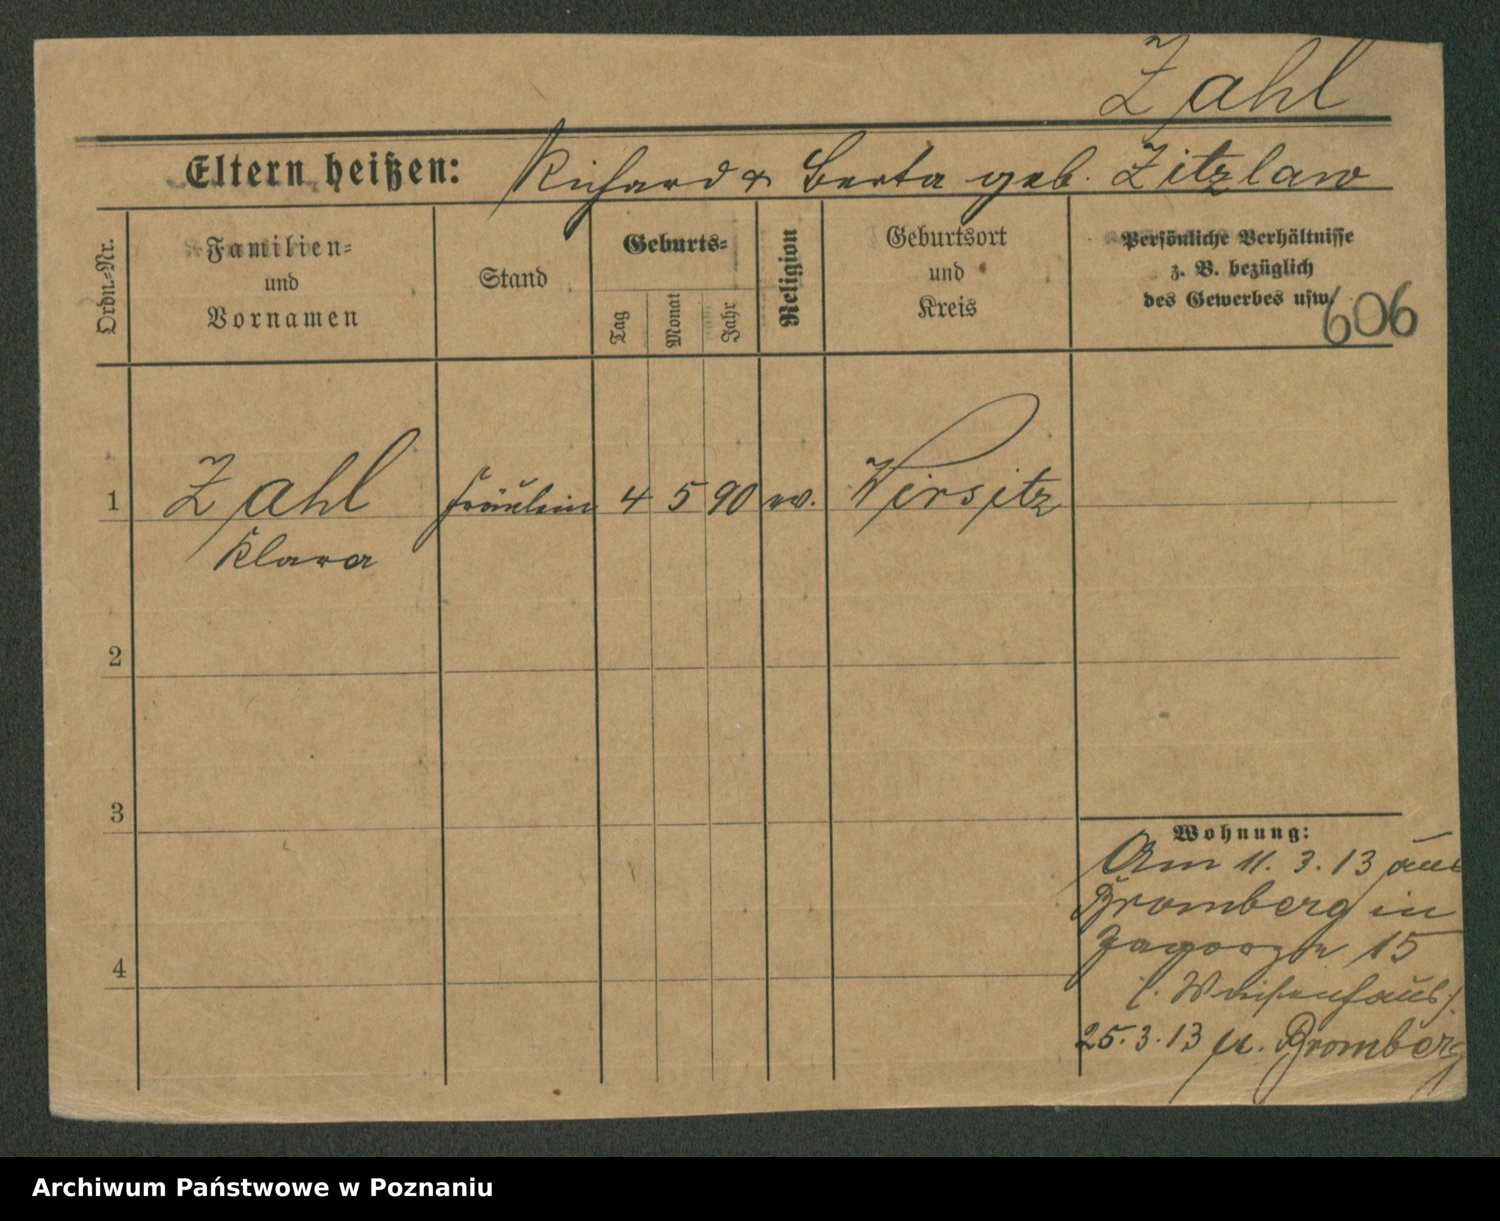 Zahl
Eltern heißen: Richard & Berta geb. Zitzlaw
Ordn.-Nr.
Familien- und Vornamen
Stand
Geburts-
Tag
Monat
Jahr
Religion
Geburtsort und Kreis
Persönliche Verhältnisse
z. B. bezüglich
des Gewerbes usw.
606
1 Zahl Fräulein 4 5 90 ev. Wirsitz
Klara
2
3
Wohnung:
Am 11.3.13 aus
Bromberg in
Zagorze 15
(. Waisenhaus.)
4
25.3.13 n. Bromberg
Archiwum Państwowe w Poznaniu